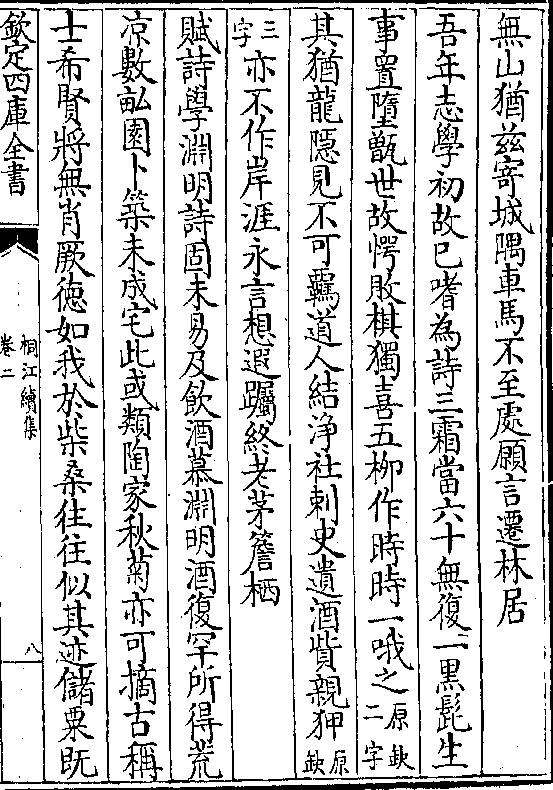 無山猶兹寄城隅車馬不至處願言遷林居
吾年志學初故已嗜為詩三霜當六十無復一黒髭生
事置墮甑世故愕敗棋獨喜五柳作時時一哦之原缺二字
其猶龍隠見不可羈道人結浄社刺史遺酒貲親狎原缺
三字亦不作岸涯永言想遐躅終老茅簷栖
賦詩學淵明詩固未易及飲酒慕淵明酒復罕所得荒
凉數畝園卜築未成宅此或類陶家秋菊亦可摘古稱
士希賢將無肖厥徳如我於柴桑往往似其迹儲粟既
欽定四庫全書
桐江續集
卷二
八